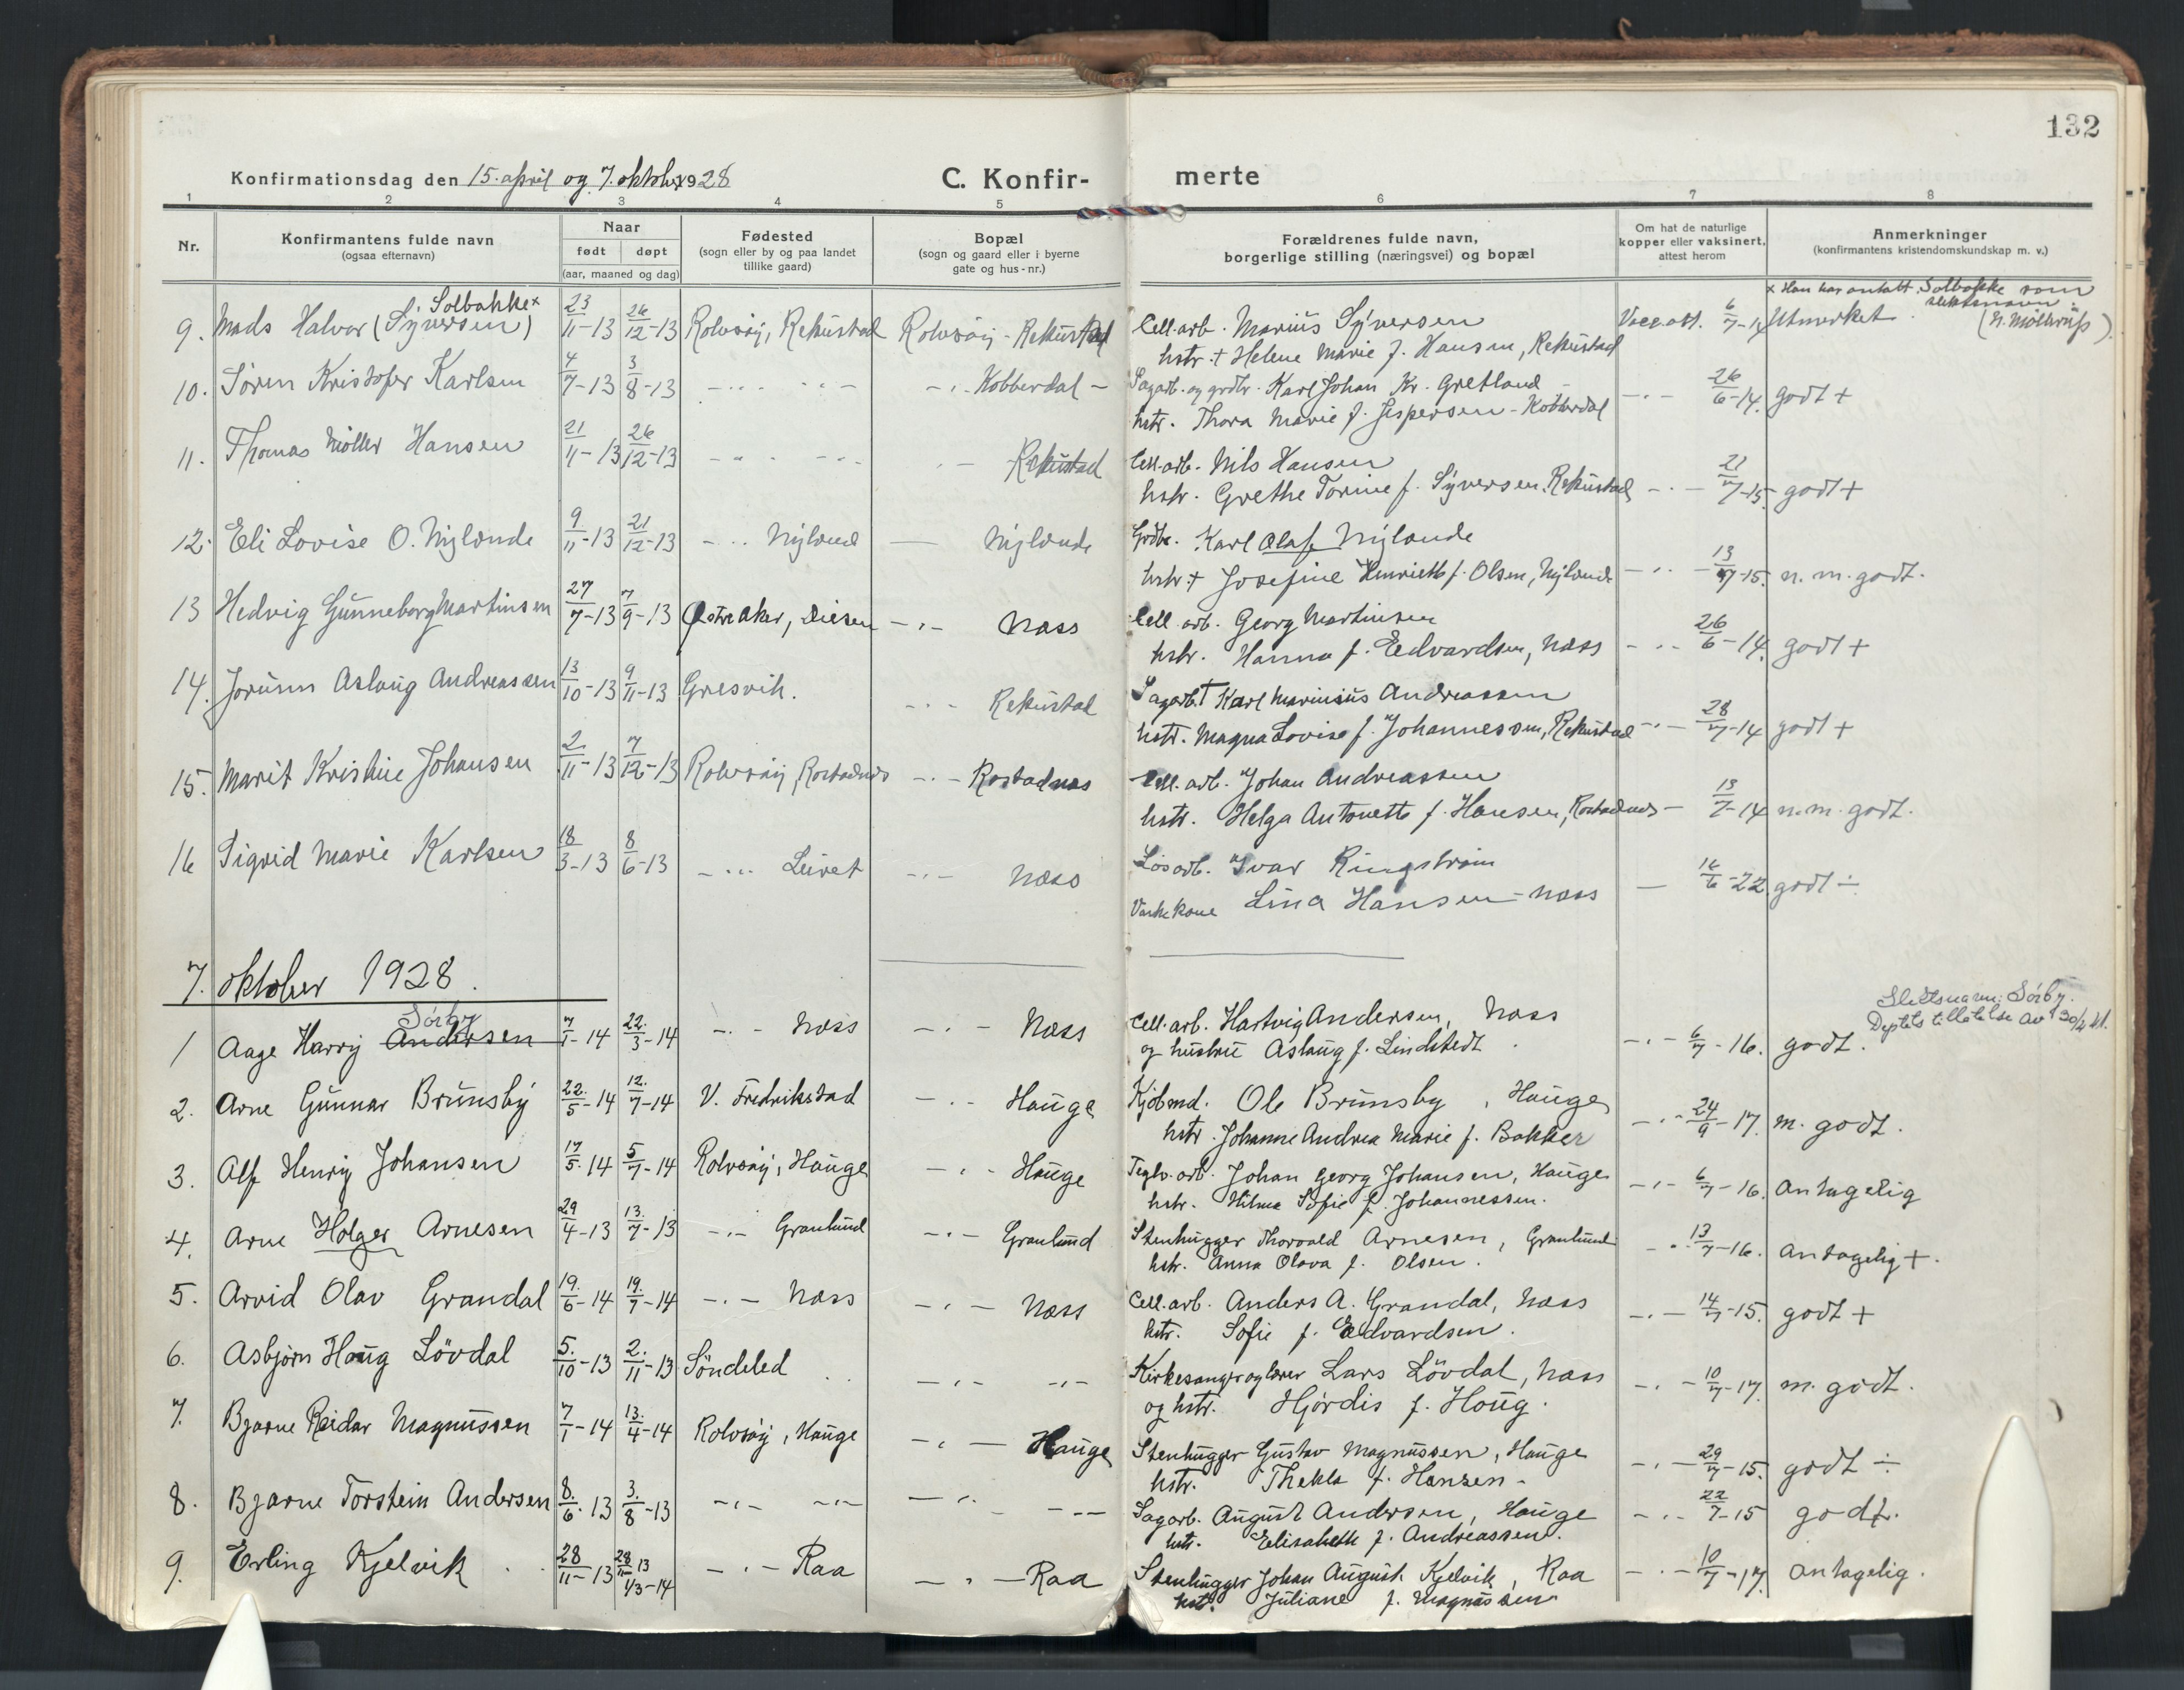 132
Konfirmationsdag den 15. april og 7. oktober 1928
C. Konfirmerte
1 2 3 4 5 6 7 8
Nr.
Konfirmantens fulde navn
(ogsaa efternavn)
Naar
født døpt
(aar, maaned og dag)
Fødested
(sogn eller by og paa landet
tillike gaard)
Bopæl
(sogn og gaard eller i byerne
gate og hus-nr.)
Forældrenes fulde navn,
borgerlige stilling (næringsvei) og bopæl
Om hat de naturlige
kopper eller vaksinert,
attest herom
Anmerkninger
(konfirmantens kristendomskundskap m. v.)
Solbakke x
x Han har antatt Solbakke som
slektsnavn.
9. Mads Halvor (Syversen) 23/11-13 26/12-13 Rolvsøy, Rekustad Rolvsøy - Rekustad Cell.arb. Marius Syversen Vacc.att. 6/7-14 Utmerket
hstr. + Helene Marie f. Hansen, Rekustad
10. Søren Kristofer Karlsen 4/7-13 3/8-13 -..- -..- -.- Kobberdal - Sagarb. og grdbr. Karl Johan Kr. Gretland -.- 26/6-14. godt +
hstr. Thora Marie f. Jespersen - Kobberdal
11. Thomas Møller Hansen 21/11-13 26/12-13 -..- -..- -.- Rekustad Cell.arb. Nils Hansen
hstr. Grethe Torine f. Syversen, Rekustad -.- 21/7-15 godt +
12. Eli Lovise O. Nylende 9/11-13 21/12-13 -.. Nylend — Nylende Grdbr. Karl Olaf Nylende
hstr + Josefine Henriette f. Olsen, Nylende -..- 13/7-15. n. m. godt.
13 Hedvig Gunneborg Martinsen 27/7-13 7/9-13 Østre Aker, Disen -.- Næss Cell arb. Georg Martinsen
hstr. Hanna f. Edvardsen, Næss -..- 26/6-14. godt +
14. Jorunn Aslaug Andreassen 13/10-13 9/11-13 Gresvik. -.- Rekustad Sagarb. + Karl Marinius Andreassen
hstr. Magna Lovise f. Johannessen, Rekustad -.- 28/7-14 godt +
15. Marit Kristine Johansen 2./11-13 7/12-13 Rolvsøy, Rostadnes -.- Rostadnæs Cell. arb. Johan Andreassen
hstr. Helga Antonette f. Hansen, Rostadnes - 13/7-14 n. m. godt.
16 Sigrid Marie Karlsen 18/3-13 8/6-13 -..- Leiret -.- Næss Løsarb. Ivar Ringstrøm
Vaskekone Lina Hansen - Næss — 16/6-22. godt ÷
7. oktober 1928.
Sørby
Slektsnavn: Sørby.
1 Aage Harry Andersen 7/1-14 22./3-14 -.- Næss -.- Næss Cell. arb. Hartvig Andersen, Næss
og hustru Aslaug f. Lindstedt. -.- 6/7-16. godt.
2. Arne Gunnar Brunsby 22./5-14 12./7-14 V. Fredrikstad -.- Hauge Kjøbmd. Ole Brunsby, Hauge
hstr. Johanne Andrea Marie f. Bakker -.- 24/9-17. m. godt.
3. Alf Henry Johansen 17/5-14 5/7-14 Rolvsøy, Hauge -.- Hauge Teglv. arb. Johan Georg Johansen, Hauge
hstr. Hilma Sofie f. Johannessen. -.- 6/7-16. antagelig
4. Arne Holger Arnesen 29/4-13 13./7-13 -.- Granlund -.- Granlund Stenhugger Thorvald Arnesen, Granlund
hstr. Anna Olava f. Olsen. -.- 13/7-16. antagelig +.
5. Arvid Olav Grandal 19./6-14 19./7-14 -.- Næss -.- Næss Cell. arb. Anders A. Grandal, Næss
hstr. Sofie f. Edvardsen. -.- 14/7-15. godt +
6. Asbjørn Haug Lövdal 5./10-13 2./11-13 Söndeled -.- -.- Kirkesanger og lærer Lars Lövdal, Næss
og hstr. Hjördis f. Houg. -.- 10/7-17. m. godt.
7. Bjarne Reidar Magnussen 7/1-14 13./4-14 Rolvsøy, Hauge -.- Hauge Stenhugger Gustav Magnussen, Hauge
hstr. Thekla f. Hansen - -.- 29/7-15. godt ÷
8. Bjarne Torstein Andersen 8./6-13 3./8-13 -.- -.- -.- -- Sagarb. August Andersen, Hauge
hstr. Elisabeth f. Andreassen. -.- 22/7-15 godt.
9. Erling Kjelvik 28/11-13 28/11 13 1/3-14 -.- Raa -.- Raa Stenhugger Johan August Kjelvik, Raa
hstr. Juliane f. Magnussen -.- 10/7-17. antagelig.